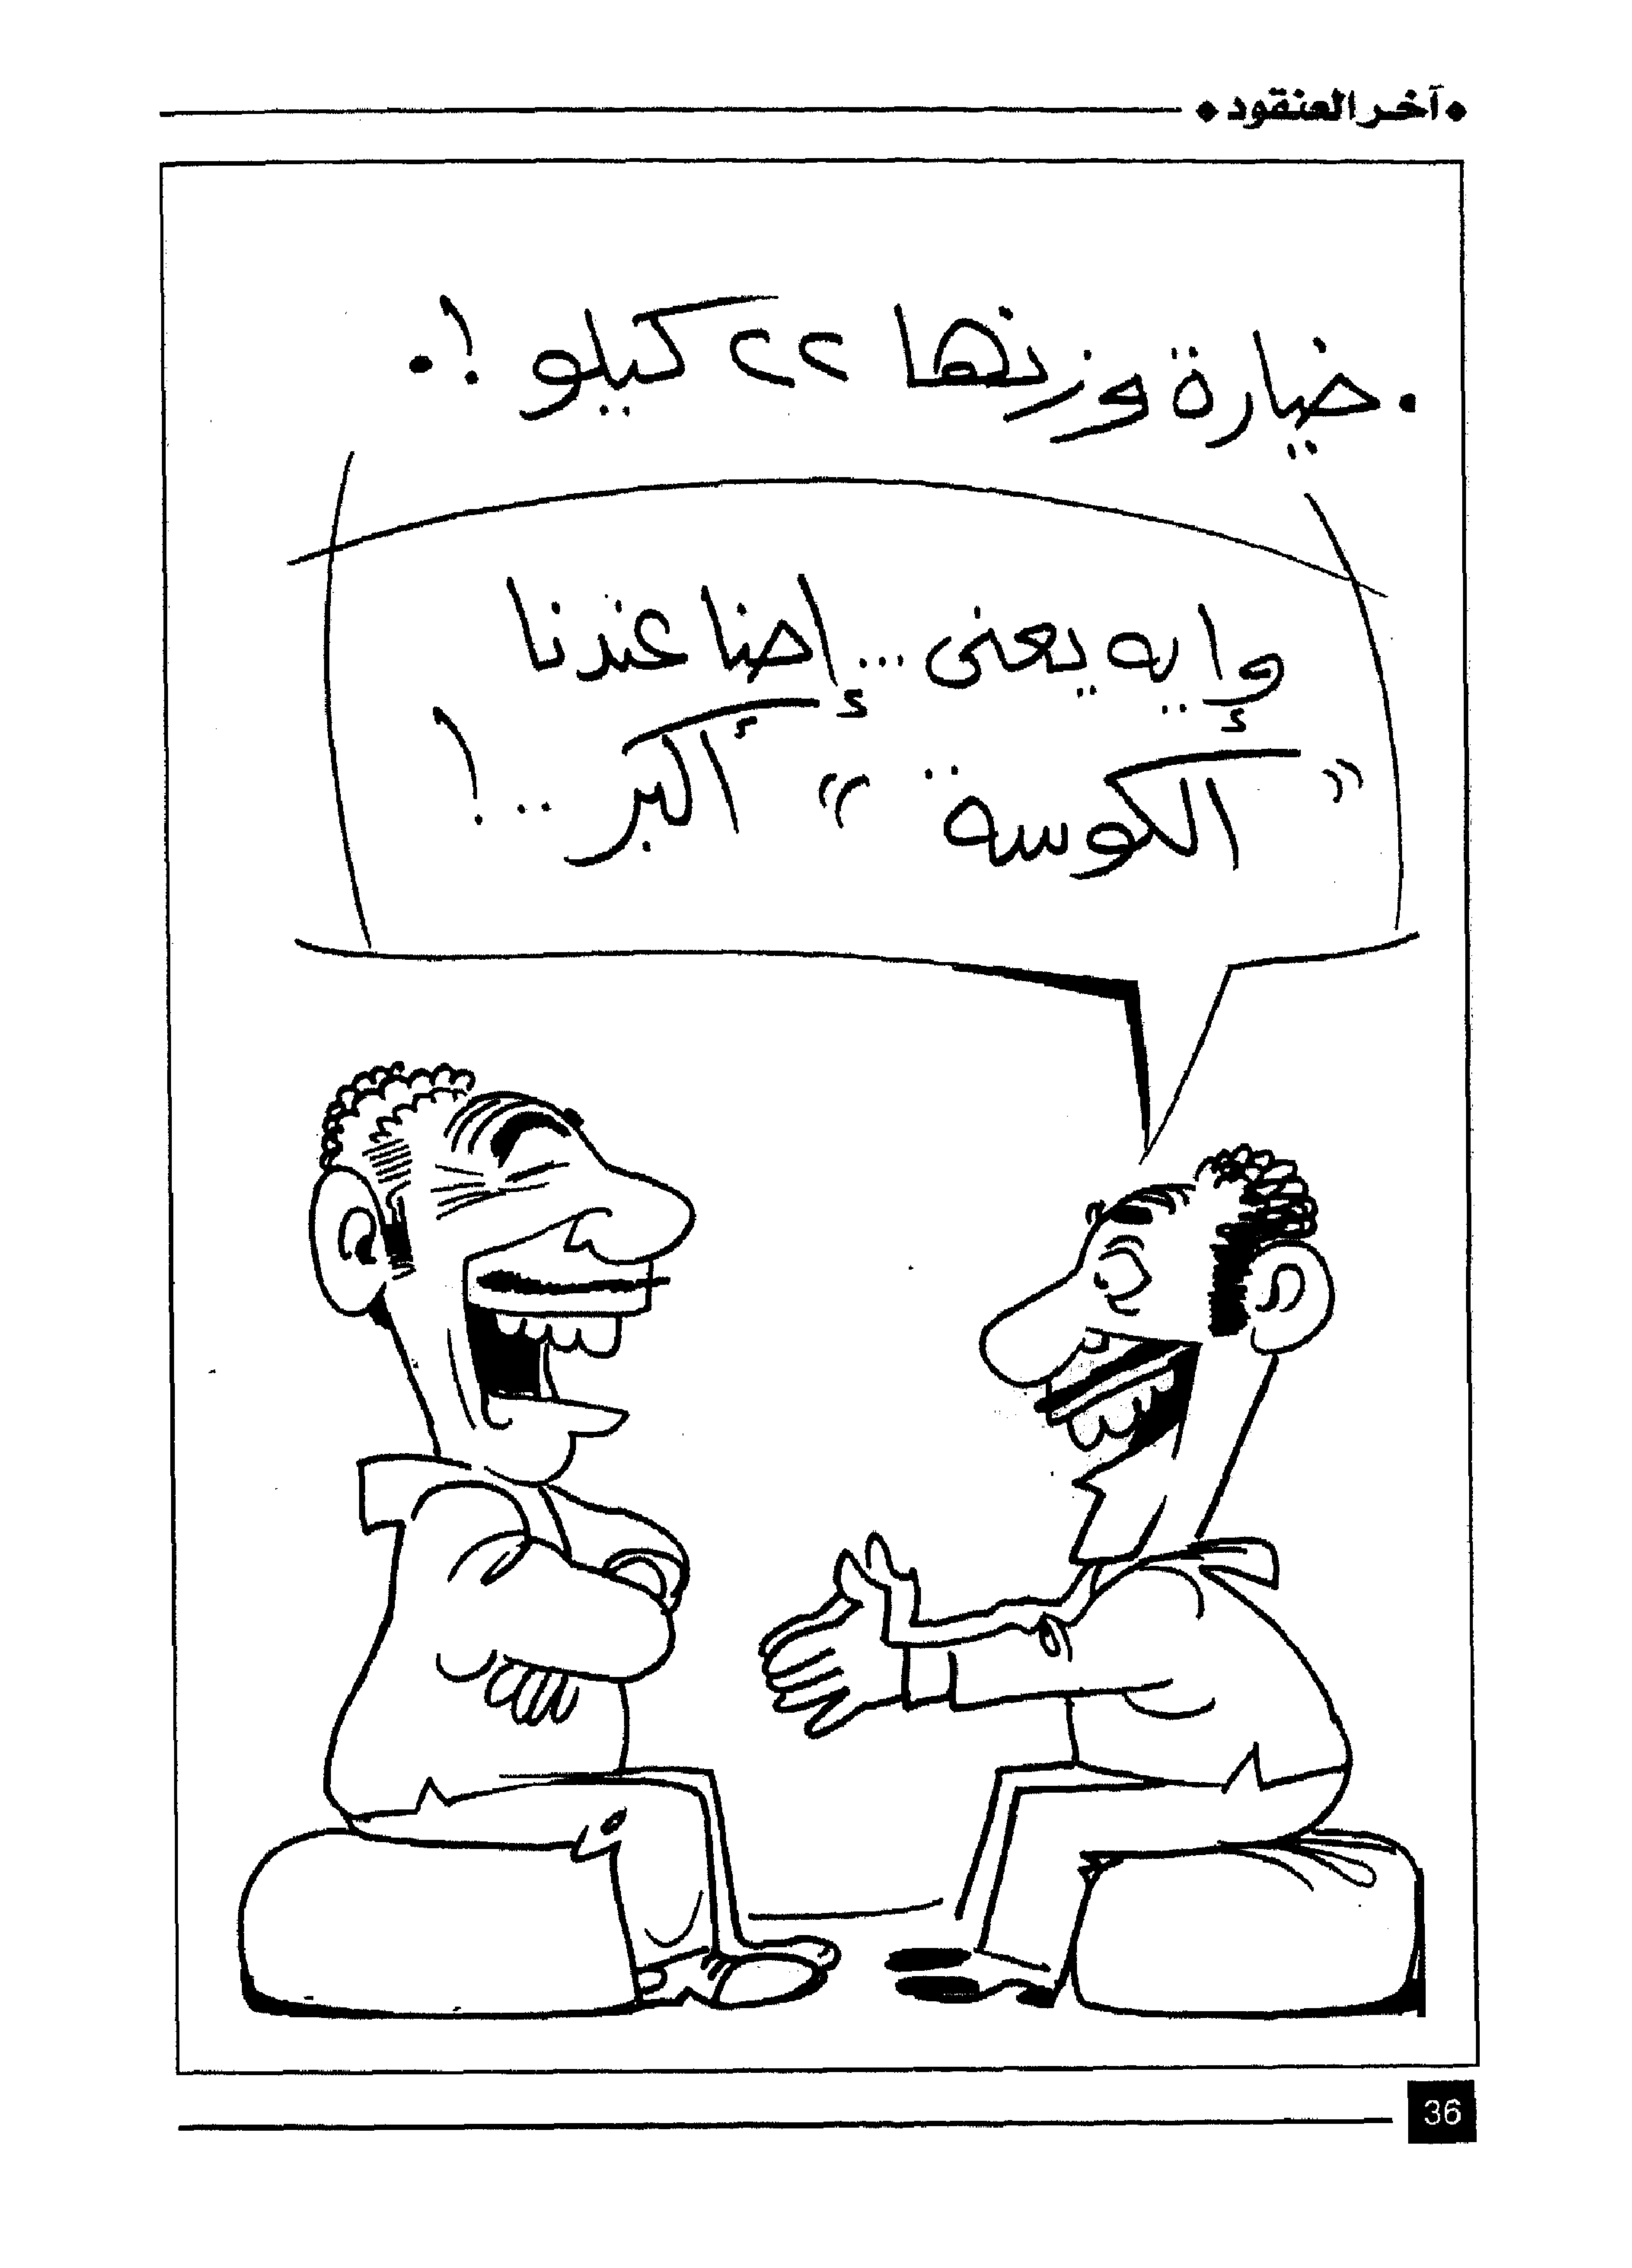 • آخر العنقود •
• خيارة وزنها ٢٢ كيلو ! •
وإيه يعنى ... إحنا عندنا
"الكوسة" أكبر ... !
36